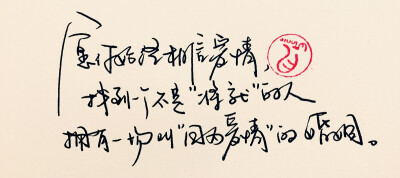 愿你始终相信爱情，
找到一个不是“将就”的人
拥有一场叫“因为爱情”的婚姻。